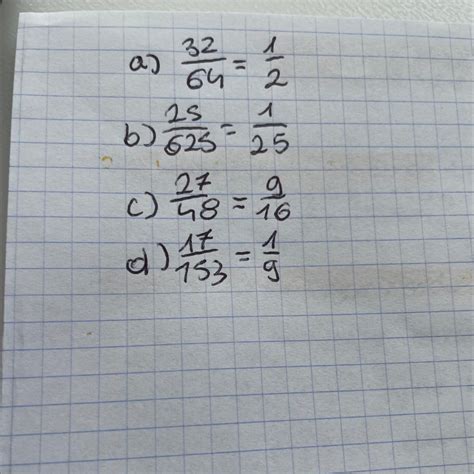 a) 32/64 = 1/2
b) 25/625 = 1/25
c) 27/48 = 9/16
d) 17/153 = 1/9